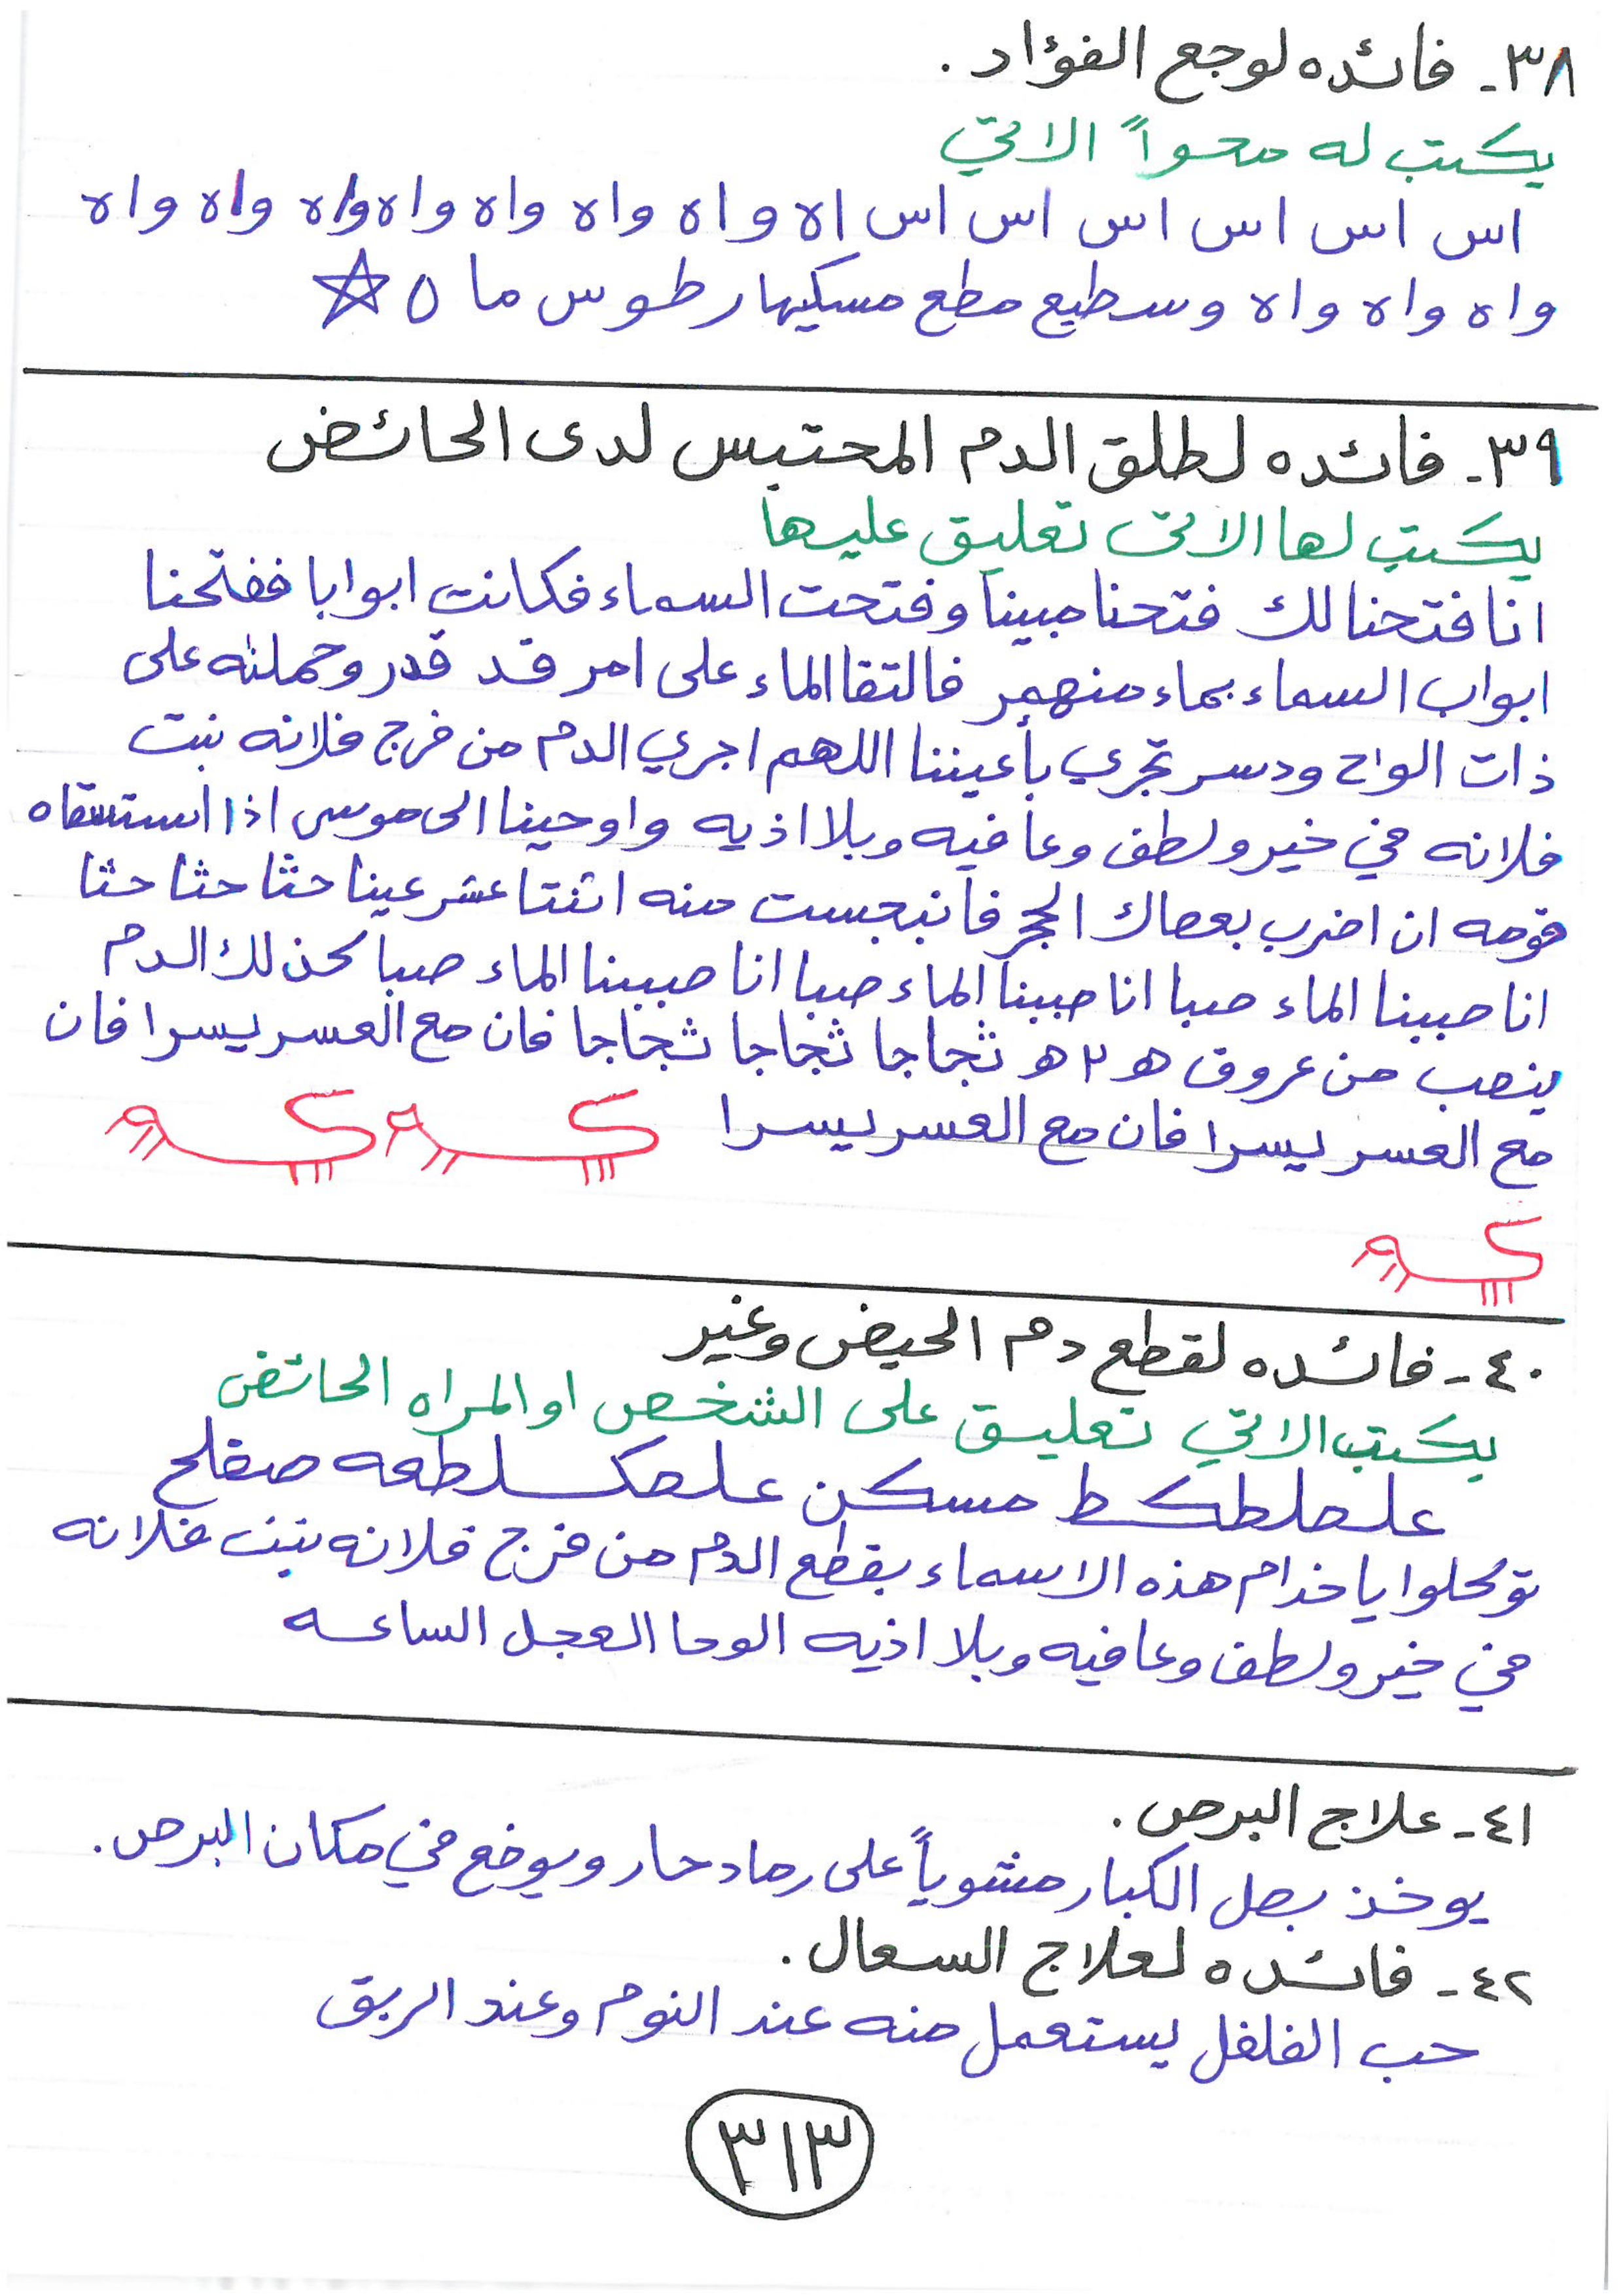 ٣٨- فائده لوجع الفؤاد .
يكتب له محواً الاتي
اس اس اس اس اس اس اه واه واه واه واه واه واه واه
واه واه واه وسطيع مطع مسكيها رطوس ما ه
٣٩- فائده لطلق الدم المحتبس لدى الحائض
يكتب لها الاتى تعليق عليها
انا فتحنا لك فتحنا مبينا وفتحت السماء فكانت ابوابا ففتحنا
ابواب السماء بماء منهمر فالتقا الماء على امر قد قدر وحملنه على
ذات الواح ودسر تجري بأعيننا اللهم اجري الدم من فرج فلانه بنت
فلانه في خير ولطف وعافيه وبلا اذيه واوحينا الى موسى اذا استسقاه
قومه ان اضرب بعصاك الحجر فانبجست منه اثنتا عشر عينا حثا حثا حثا
انا صببنا الماء صبا انا صببنا الماء صبا انا صببنا الماء صبا كذلك الدم
ينصب من عروق ه ٢ ه ثجاجا ثجاجا ثجاجا فان مع العسر يسرا فان
مع العسر يسرا فان مع العسر يسرا
٤٠- فائده لقطع دم الحيض وغير
يكتب الاتي تعليق على الشخص او المراه الحائض
علصلطكط مسكن علصكسلطعه صفلح
توكلوا يا خدام هذه الاسماء بقطع الدم من فرج فلانه بنت فلانه
في خير ولطف وعافيه وبلا اذيه الوحا العجل الساعه
٤١- علاج البرص .
يوخذ بصل الكبار مشوياً على رماد حار ويوضع في مكان البرص .
٤٢- فائده لعلاج السعال .
حب الفلفل يستعمل منه عند النوم وعند الريق
٣١٣